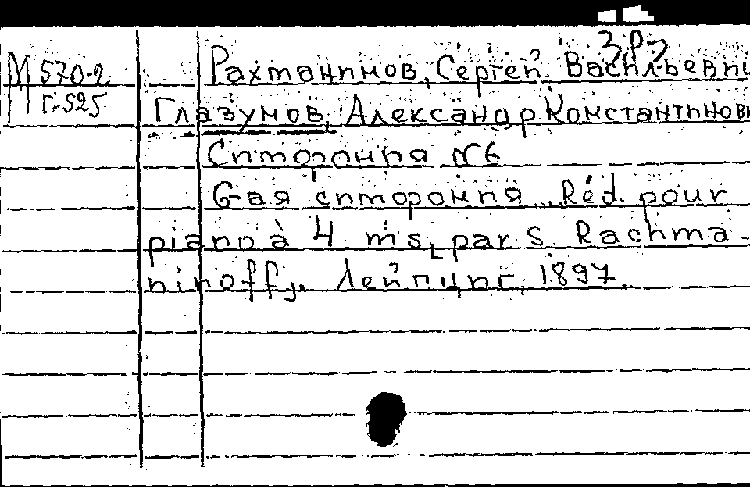 3 Р2
М 570-2 Рахманинов, Сергей Васильеви
Г-525 Глазунов, Александр Константинови
Симфония №6
6-ая симфония. Réd. pour
piano à 4 ms, par S. Rachma-
ninoff,. Лейпциг, 1897.